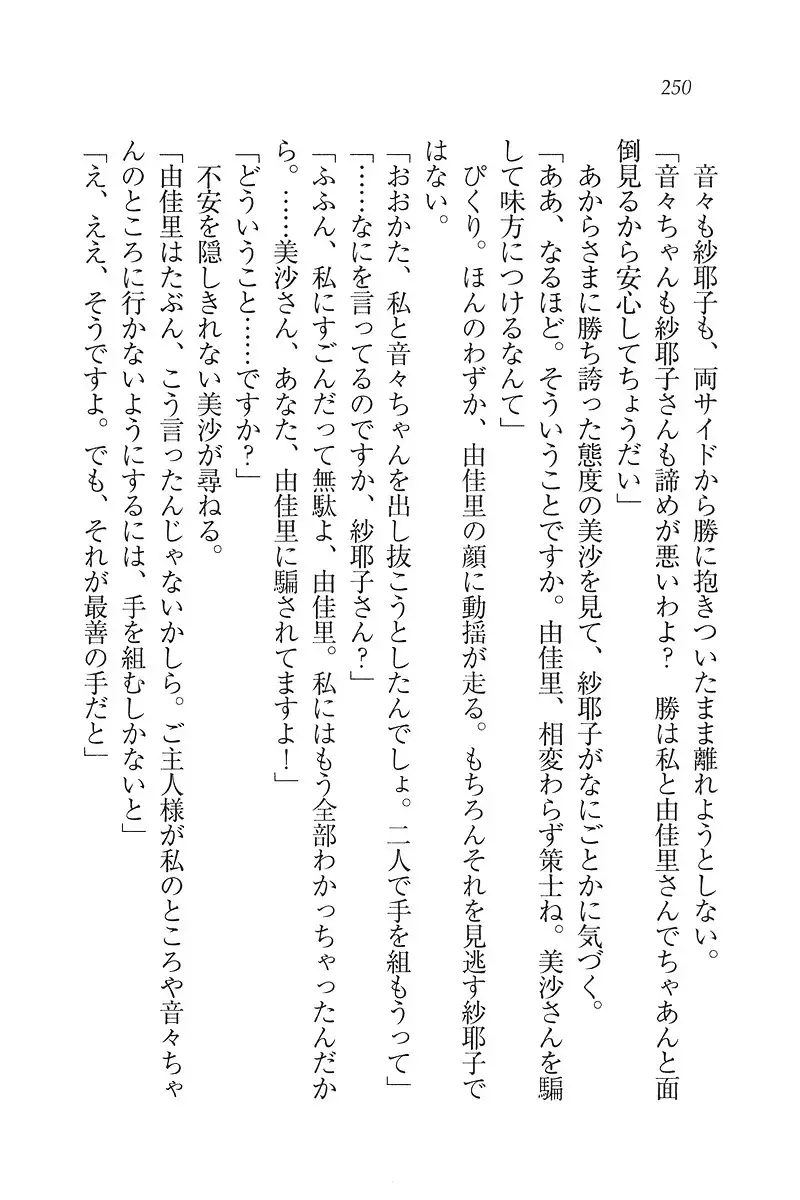 250
音々も紗耶子も、両サイドから勝に抱きついたまま離れようとしない。
「音々ちゃんも紗耶子さんも諦めが悪いわよ？　勝は私と由佳里さんでちゃあんと面
倒見るから安心してちょうだい」
あからさまに勝ち誇った態度の美沙を見て、紗耶子がなにごとかに気づく。
「ああ、なるほど。そういうことですか。由佳里、相変わらず策士ね。美沙さんを騙
して味方につけるなんて」
ぴくり。ほんのわずか、由佳里の顔に動揺が走る。もちろんそれを見逃す紗耶子で
はない。
「おおかた、私と音々ちゃんを出し抜こうとしたんでしょ。二人で手を組もうって」
「……なにを言ってるのですか、紗耶子さん？」
「ふふん、私にすごんだって無駄よ、由佳里。私にはもう全部わかっちゃったんだか
ら。……美沙さん、あなた、由佳里に騙されてますよ！」
「どういうこと……ですか？」
不安を隠しきれない美沙が尋ねる。
「由佳里はたぶん、こう言ったんじゃないかしら。ご主人様が私のところや音々ちゃ
んのところに行かないようにするには、手を組むしかないと」
「え、ええ、そうですよ。でも、それが最善の手だと」